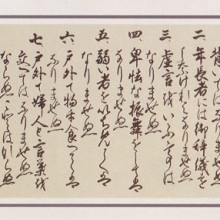 二 年長者には御辞儀を
しなければなりませぬ
三 虚言をいふ事は
なりませぬ
四 卑怯な振舞をしては
なりませぬ
五 弱い者をいぢめては
なりませぬ
六 戸外で物を食べては
なりませぬ
七 戸外で婦人と言葉を
交へてはなりませぬ
ならぬことはならぬ